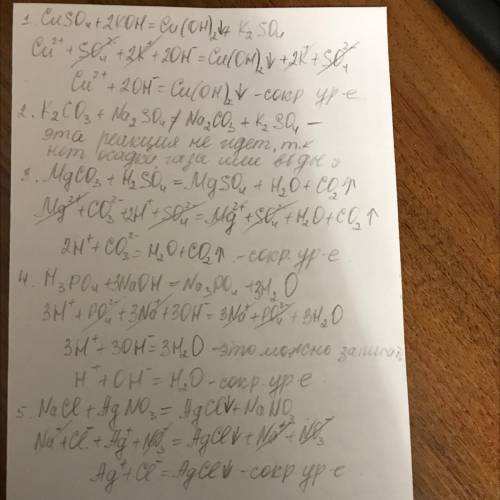 1. CuSO₄ + 2KOH = Cu(OH)₂↓ + K₂SO₄
Cu²⁺ + SO₄²⁻ + 2K⁺ + 2OH⁻ = Cu(OH)₂↓ + 2K⁺ + SO₄²⁻
Cu²⁺ + 2OH⁻ = Cu(OH)₂↓ - сокр. ур-е
2. K₂CO₃ + Na₂SO₄ ≠ Na₂CO₃ + K₂SO₄ —
эта реакция не идет, т.к
нет осадка газа или воды
3. MgCO₃ + H₂SO₄ = MgSO₄ + H₂O + CO₂↑
Mg²⁺ + CO₃²⁻ + 2H⁺ + SO₄²⁻ = Mg²⁺ + SO₄²⁻ + H₂O + CO₂↑
2H⁺ + CO₃²⁻ = H₂O + CO₂↑ - сокр. ур-е
4. H₃PO₄ + 3NaOH = Na₃PO₄ + 3H₂O
3H⁺ + PO₄³⁻ + 3Na⁺ + 3OH⁻ = 3Na⁺ + PO₄³⁻ + 3H₂O
3H⁺ - 3OH⁻ = 3H₂O - это можно записать
H⁺ + OH⁻ = H₂O - сокр. ур-е
5. NaCl + AgNO₃ = AgCl↓ + NaNO₃
Na⁺ + Cl⁻ + Ag⁺ + NO₃⁻ = AgCl↓ + Na⁺ + NO₃⁻
Ag⁺ + Cl⁻ = AgCl↓ - сокр ур-е